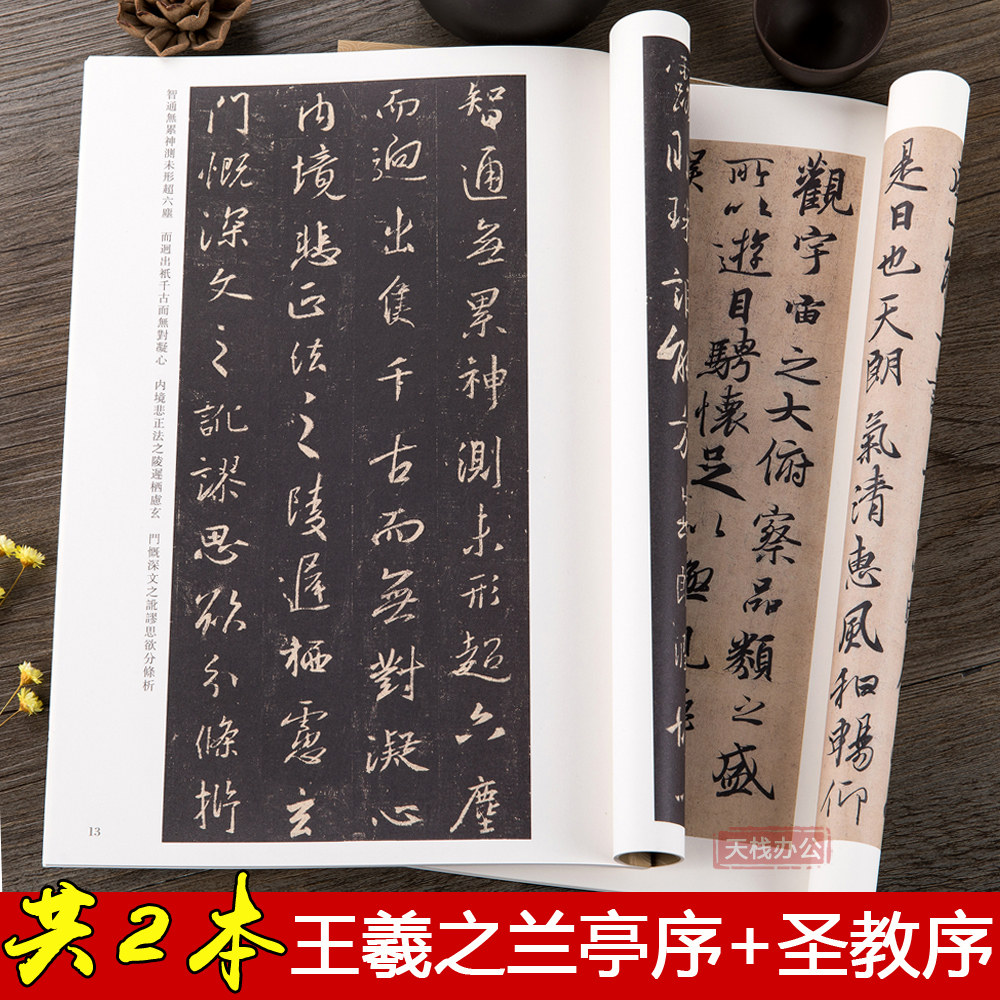 是日也天朗氣清惠風和暢仰
觀宇宙之大俯察品類之盛
所以遊目騁懷足以極視
智通無累神測未形超六塵
而迥出隻千古而無對凝心
内境悲正法之陵遲栖慮玄
門慨深文之訛謬思欲分條析
智通無累神測未形超六塵 而迥出衹千古而無對凝心 内境悲正法之陵遲栖慮玄 門慨深文之訛謬思欲分條析
13
天栈办公
共2本 王羲之兰亭序+圣教序